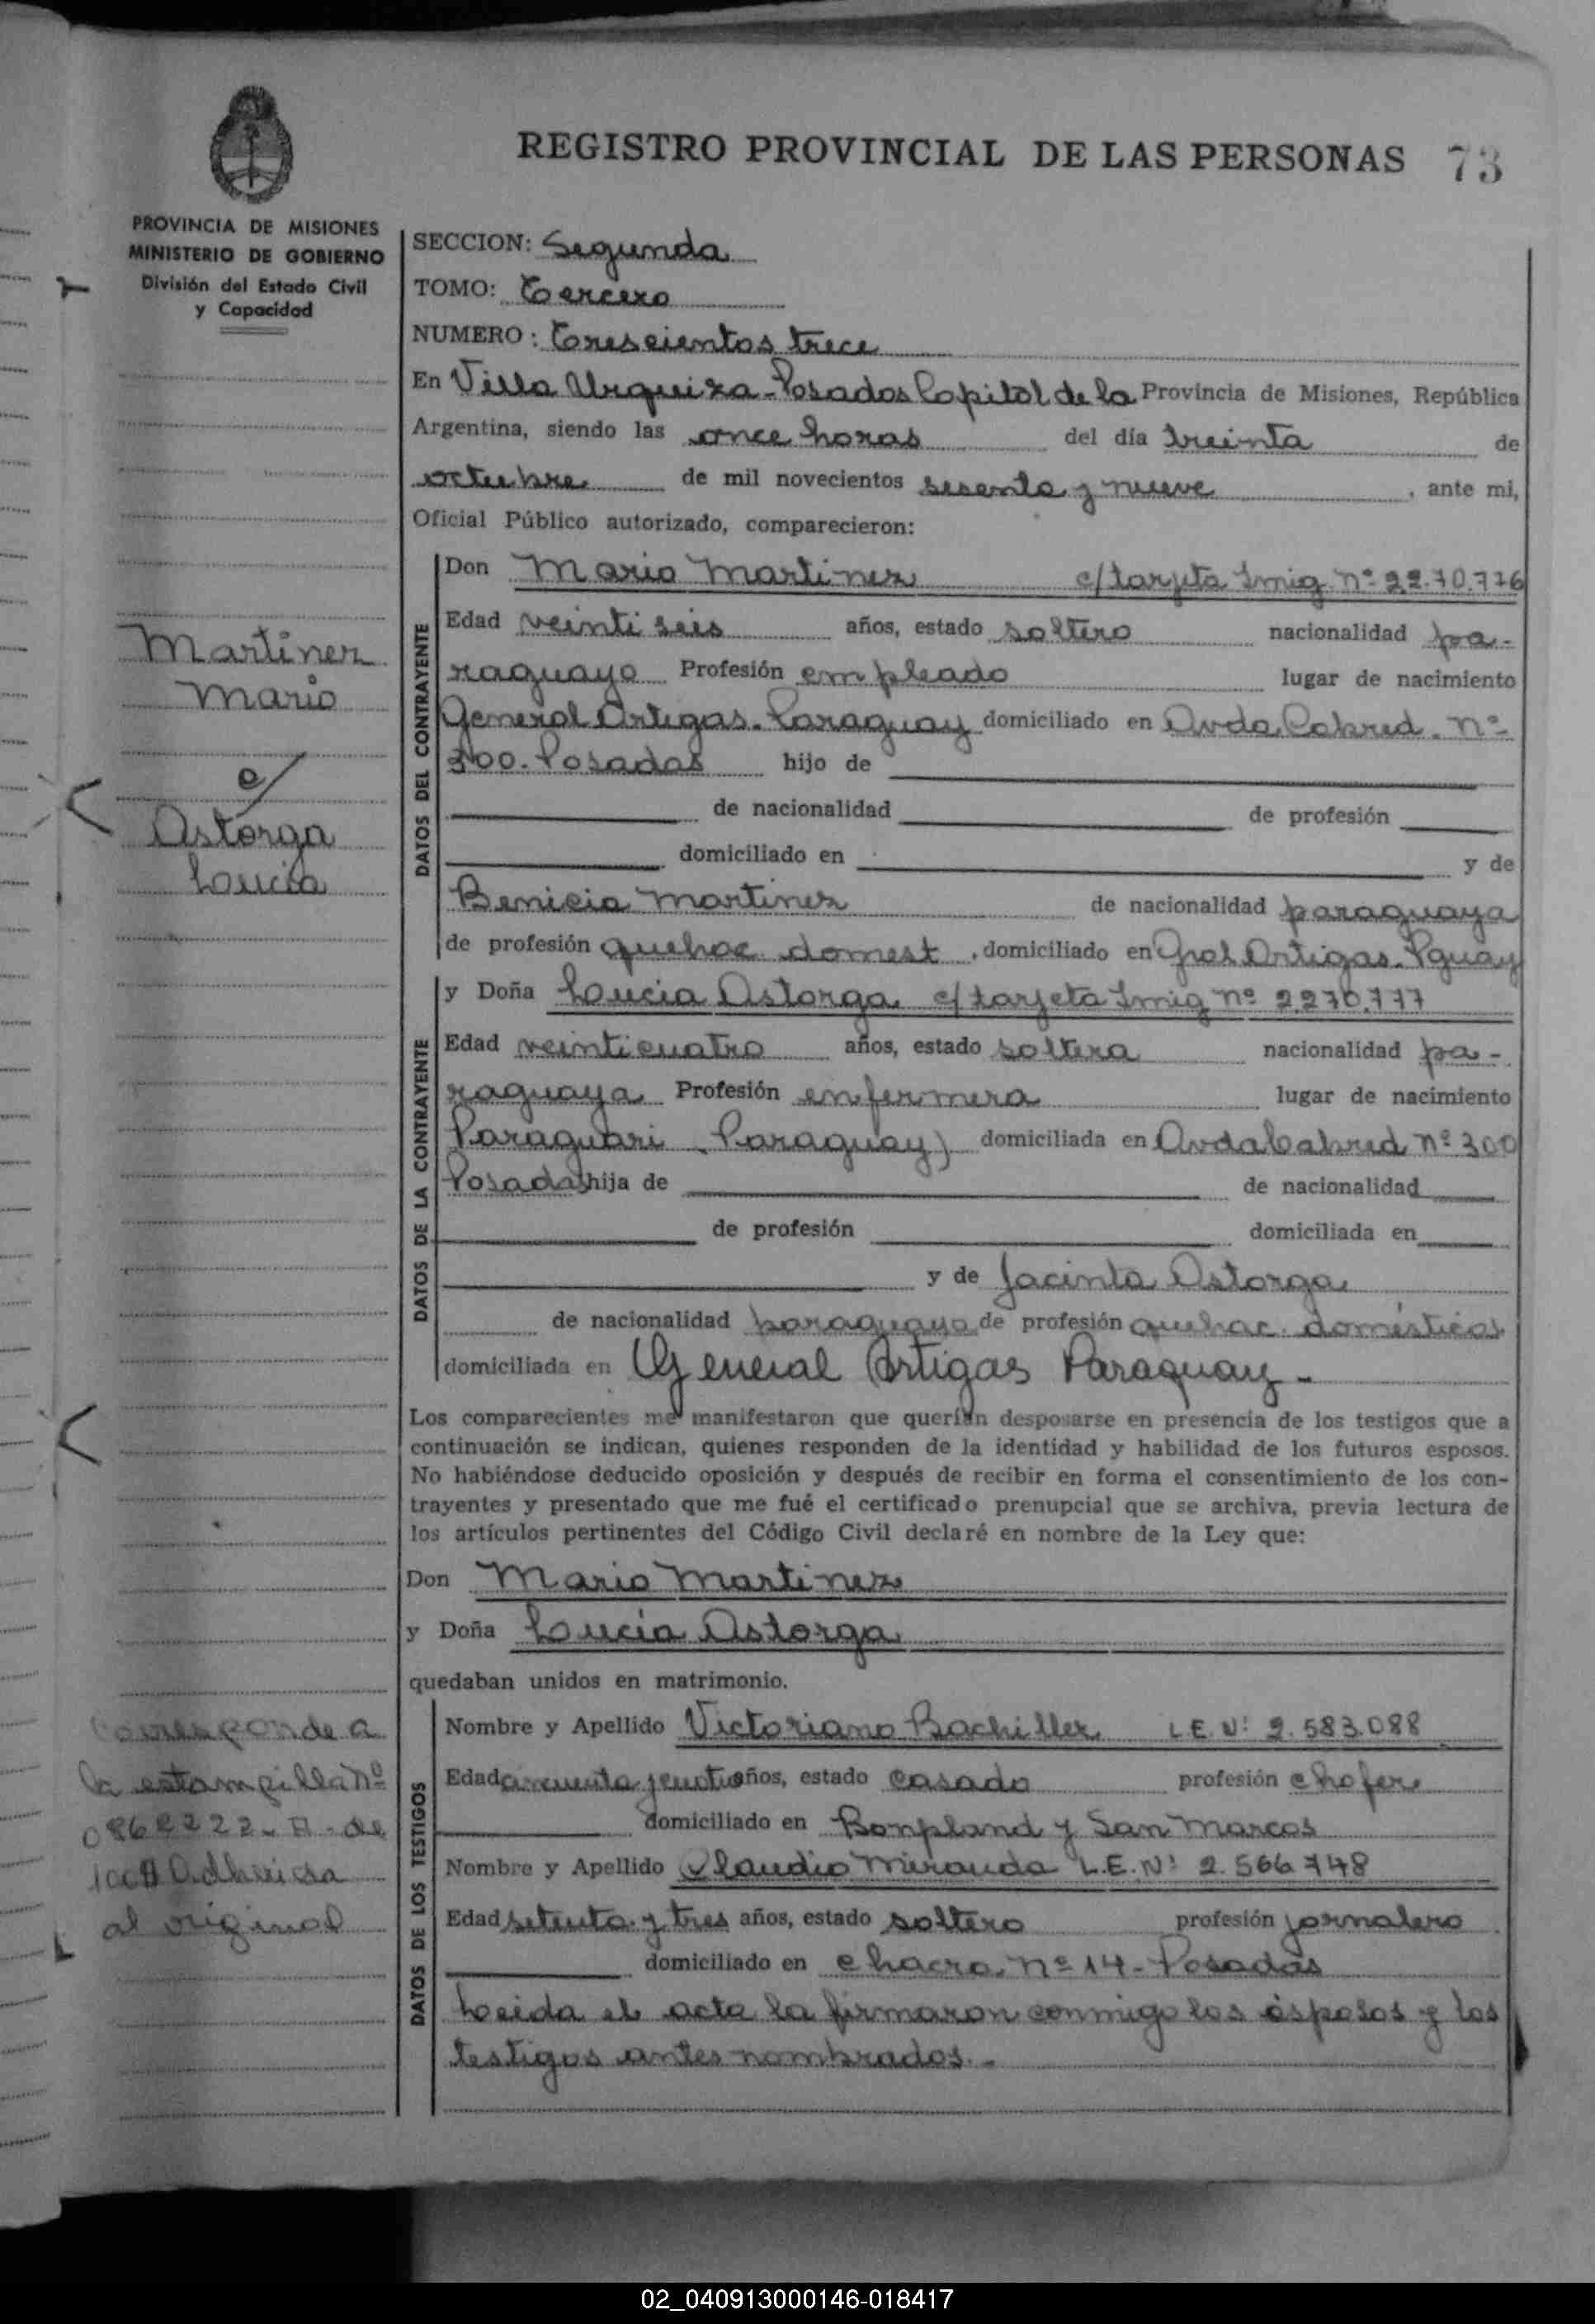 REGISTRO PROVINCIAL DE LAS PERSONAS 73
PROVINCIA DE MISIONES
MINISTERIO DE GOBIERNO
División del Estado Civil
y Capacidad
SECCION: Segunda
TOMO: Tercero
NUMERO: Trescientos trece
En Villa Urquiza - Posadas Capital de la Provincia de Misiones, República
Argentina, siendo las once horas del día treinta de
octubre de mil novecientos sesenta y nueve, ante mi,
Oficial Público autorizado, comparecieron:
DATOS DEL CONTRAYENTE
Don Mario Martinez c/tarjeta Inmig Nº 22.70.776
Edad veinti seis años, estado soltero nacionalidad pa-
raguayo Profesión empleado lugar de nacimiento
General Artigas - Paraguay domiciliado en Avda Cabred. Nº
300. Posadas hijo de
de nacionalidad de profesión
domiciliado en y de
Benicia Martinez de nacionalidad paraguaya
de profesión quehac. domest, domiciliado en Gral Artigas - Pguay
DATOS DE LA CONTRAYENTE
y Doña Lucia Astorga c/tarjeta Imig nº 2.270.777
Edad veinticuatro años, estado soltera nacionalidad pa-
raguaya Profesión enfermera lugar de nacimiento
Paraguari (Paraguay) domiciliada en Avda Cabred Nº 300
Posadas hija de de nacionalidad
de profesión domiciliada en
y de Jacinta Astorga
de nacionalidad paraguaya de profesión quehac. domésticos
domiciliada en General Artigas Paraguay -
Los comparecientes me manifestaron que querían desposarse en presencia de los testigos que a
continuación se indican, quienes responden de la identidad y habilidad de los futuros esposos.
No habiéndose deducido oposición y después de recibir en forma el consentimiento de los con-
trayentes y presentado que me fué el certificado prenupcial que se archiva, previa lectura de
los artículos pertinentes del Código Civil declaré en nombre de la Ley que:
Don Mario Martinez
y Doña Lucia Astorga
quedaban unidos en matrimonio.
DATOS DE LOS TESTIGOS
Nombre y Apellido Victoriano Bachiller L.E. Nº 2.583.088
Edad cincuenta y cuatro años, estado casado profesión chofer
domiciliado en Bonpland y San Marcos
Nombre y Apellido Claudio Miranda L.E. Nº 2.566.748
Edad setenta y tres años, estado soltero profesión jornalero
domiciliado en chacra. nº 14 - Posadas
Leida el acta la firmaron conmigo los esposos y los
testigos antes nombrados. -
Martinez
Mario
c/
Astorga
Lucia
Corresponde a
la estampilla Nº
0862222 - A - de
100 $ Adherida
al original
02_040913000146-018417